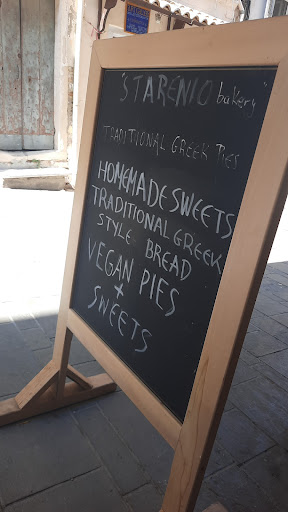 "STARENIO bakery"
TRADITIONAL GREEK PIES
HOMEMADE SWEETS
TRADITIONAL GREEK
STYLE BREAD
VEGAN PIES
+
SWEETS